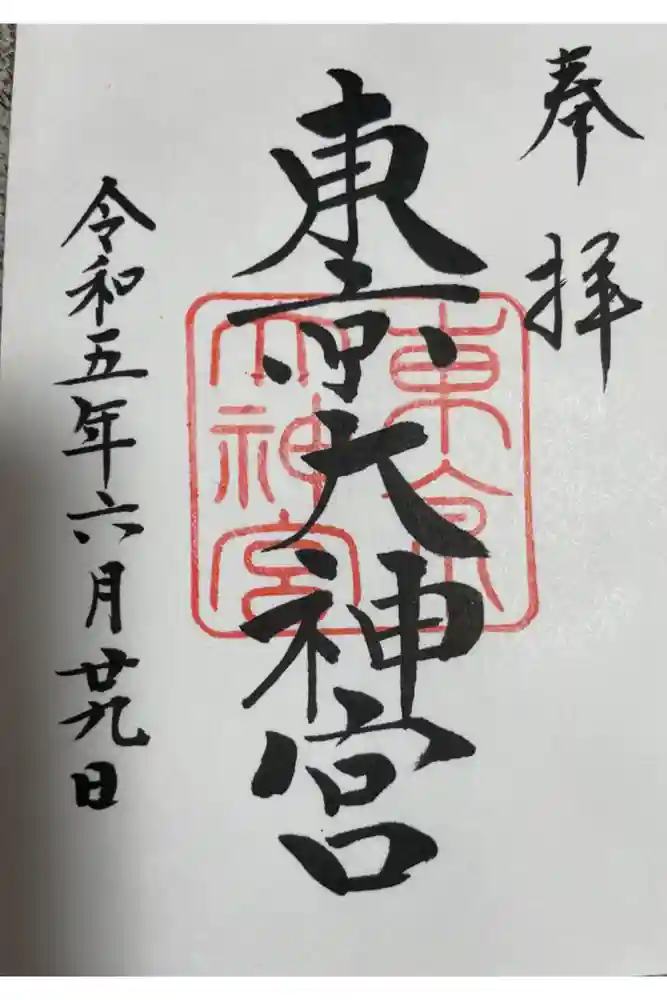 奉拝
東京大神宮
東京
大神宮
令和五年六月廿九日